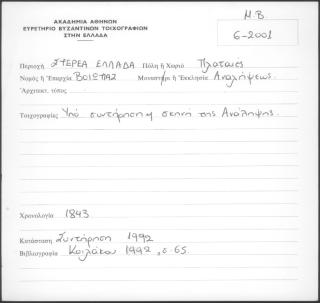 ΑΚΑΔΗΜΙΑ ΑΘΗΝΩΝ
ΕΥΡΕΤΗΡΙΟ ΒΥΖΑΝΤΙΝΩΝ ΤΟΙΧΟΓΡΑΦΙΩΝ
ΣΤΗΝ ΕΛΛΑΔΑ
Μ.Β.
6-2001
Περιοχή ΣΤΕΡΕΑ ΕΛΛΑΔΑ Πόλη ἤ Χωριό Πλαταιές
Νομός ἤ Ἐπαρχία ΒΟΙΩΤΙΑΣ Μοναστήρι ἤ Ἐκκλησία Αναλήψεως
Ἀρχιτεκτ. τύπος
Τοιχογραφίες Υπό συντήρηση η σκηνή της Ανάληψης.
Χρονολογία 1843
Κατάσταση Συντήρηση 1992
Βιβλιογραφία Κοιλάκου 1992, σ. 65.